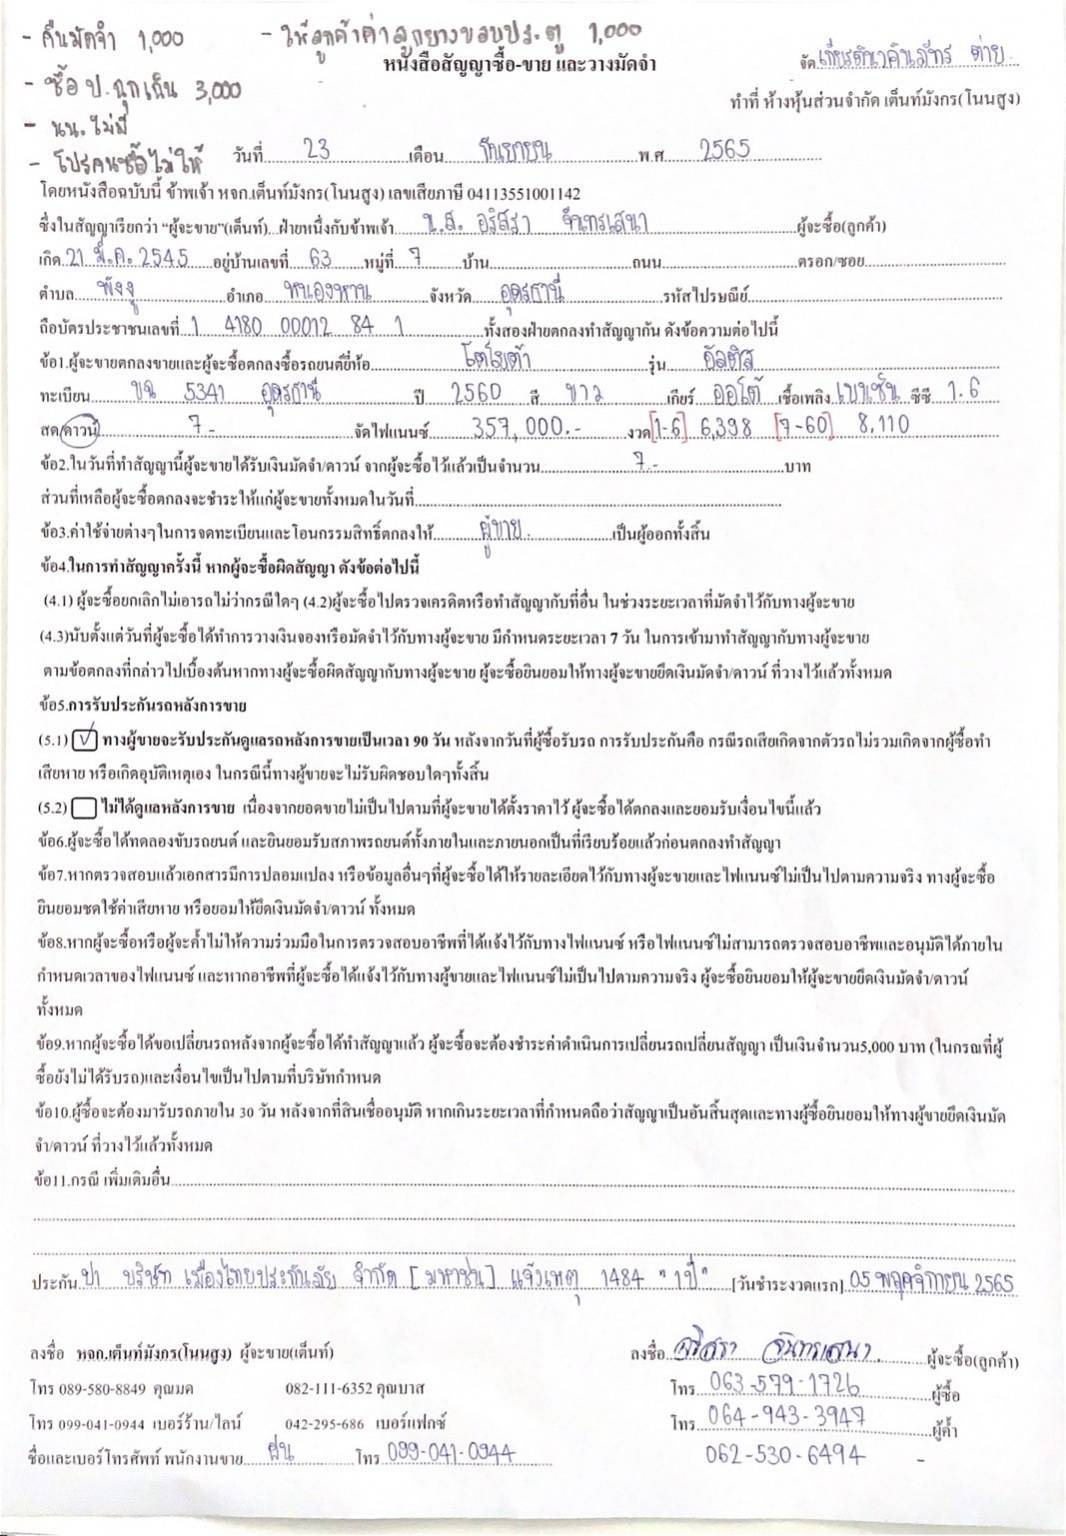 - คืนมัดจำ 1,000 - ให้ลูกค้าค่าลูกยางขอบประตู 1,000
หนังสือสัญญาซื้อ-ขาย และวางมัดจำ
จัด เกียรตินาคินภัทร ต่าย
- ซื้อ ป.ฉุกเฉิน 3,000
ทำที่ ห้างหุ้นส่วนจำกัด เต็นท์มังกร(โนนสูง)
- นน. ไม่มี
- โปรคนซื้อไม่ให้
วันที่ 23 เดือน กันยายน พ.ศ 2565
โดยหนังสือฉบับนี้ ข้าพเจ้า หจก.เต็นท์มังกร(โนนสูง) เลขเสียภาษี 04113551001142
ซึ่งในสัญญาเรียกว่า "ผู้จะขาย"(เต็นท์)...ฝ่ายหนึ่งกับข้าพเจ้า น.ส. อริสรา จันทรเสนา ผู้จะซื้อ(ลูกค้า)
เกิด 21 มี.ค. 2545 อยู่บ้านเลขที่ 63 หมู่ที่ 7 บ้าน ถนน ตรอก/ซอย
ตำบล พังงู อำเภอ หนองหาน จังหวัด อุดรธานี รหัสไปรษณีย์
ถือบัตรประชาชนเลขที่ 1 4180 00012 84 1 ทั้งสองฝ่ายตกลงทำสัญญากัน ดังข้อความต่อไปนี้
ข้อ1.ผู้จะขายตกลงขายและผู้จะซื้อตกลงซื้อรถยนต์ยี่ห้อ โตโยต้า รุ่น อัลติส
ทะเบียน ขฉ 5341 อุดรธานี ปี 2560 สี ขาว เกียร์ ออโต้ เชื้อเพลิง เบนซิน ซีซี 1.6
สด/ดาวน์ 7.- จัดไฟแนนซ์ 357,000.- งวด [1-6] 6,398 [7-60] 8,110
ข้อ2.ในวันที่ทำสัญญานี้ผู้จะขายได้รับเงินมัดจำ/ดาวน์ จากผู้จะซื้อไว้แล้วเป็นจำนวน 7.- บาท
ส่วนที่เหลือผู้จะซื้อตกลงจะชำระให้แก่ผู้จะขายทั้งหมดในวันที่
ข้อ3.ค่าใช้จ่ายต่างๆในการจดทะเบียนและโอนกรรมสิทธิ์ตกลงให้ ผู้ขาย เป็นผู้ออกทั้งสิ้น
ข้อ4.ในการทำสัญญาครั้งนี้ หากผู้จะซื้อผิดสัญญา ดังข้อต่อไปนี้
(4.1) ผู้จะซื้อยกเลิกไม่เอารถไม่ว่ากรณีใดๆ (4.2)ผู้จะซื้อไปตรวจเครดิตหรือทำสัญญากับที่อื่น ในช่วงระยะเวลาที่มัดจำไว้กับทางผู้จะขาย
(4.3)นับตั้งแต่วันที่ผู้จะซื้อได้ทำการวางเงินจองหรือมัดจำไว้กับทางผู้จะขาย มีกำหนดระยะเวลา 7 วัน ในการเข้ามาทำสัญญากับทางผู้จะขาย
ตามข้อตกลงที่กล่าวไปเบื้องต้นหากทางผู้จะซื้อผิดสัญญากับทางผู้จะขาย ผู้จะซื้อยินยอมให้ทางผู้จะขายยึดเงินมัดจำ/ดาวน์ ที่วางไว้แล้วทั้งหมด
ข้อ5.การรับประกันรถหลังการขาย
(5.1) ✓ ทางผู้ขายจะรับประกันดูแลรถหลังการขายเป็นเวลา 90 วัน หลังจากวันที่ผู้ซื้อรับรถ การรับประกันคือ กรณีรถเสียเกิดจากตัวรถไม่รวมเกิดจากผู้ซื้อทำ
เสียหาย หรือเกิดอุบัติเหตุเอง ในกรณีนี้ทางผู้ขายจะไม่รับผิดชอบใดๆทั้งสิ้น
(5.2) ไม่ได้ดูแลหลังการขาย เนื่องจากยอดขายไม่เป็นไปตามที่ผู้จะขายได้ตั้งราคาไว้ ผู้จะซื้อได้ตกลงและยอมรับเงื่อนไขนี้แล้ว
ข้อ6.ผู้จะซื้อได้ทดลองขับรถยนต์ และยินยอมรับสภาพรถยนต์ทั้งภายในและภายนอกเป็นที่เรียบร้อยแล้วก่อนตกลงทำสัญญา
ข้อ7.หากตรวจสอบแล้วเอกสารมีการปลอมแปลง หรือข้อมูลอื่นๆที่ผู้จะซื้อได้ให้รายละเอียดไว้กับทางผู้จะขายและไฟแนนซ์ไม่เป็นไปตามความจริง ทางผู้จะซื้อ
ยินยอมชดใช้ค่าเสียหาย หรือยอมให้ยึดเงินมัดจำ/ดาวน์ ทั้งหมด
ข้อ8.หากผู้จะซื้อหรือผู้จะค้ำไม่ให้ความร่วมมือในการตรวจสอบอาชีพที่ได้แจ้งไว้กับทางไฟแนนซ์ หรือไฟแนนซ์ไม่สามารถตรวจสอบอาชีพและอนุมัติได้ภายใน
กำหนดเวลาของไฟแนนซ์ และหากอาชีพที่ผู้จะซื้อได้แจ้งไว้กับทางผู้ขายและไฟแนนซ์ไม่เป็นไปตามความจริง ผู้จะซื้อยินยอมให้ผู้จะขายยึดเงินมัดจำ/ดาวน์
ทั้งหมด
ข้อ9.หากผู้จะซื้อได้ขอเปลี่ยนรถหลังจากผู้จะซื้อได้ทำสัญญาแล้ว ผู้จะซื้อจะต้องชำระค่าดำเนินการเปลี่ยนรถเปลี่ยนสัญญา เป็นเงินจำนวน5,000 บาท (ในกรณที่ผู้
ซื้อยังไม่ได้รับรถ)และเงื่อนไขเป็นไปตามที่บริษัทกำหนด
ข้อ10.ผู้ซื้อจะต้องมารับรถภายใน 30 วัน หลังจากที่สินเชื่ออนุมัติ หากเกินระยะเวลาที่กำหนดถือว่าสัญญาเป็นอันสิ้นสุดและทางผู้ซื้อยินยอมให้ทางผู้ขายยึดเงินมัด
จำ/ดาวน์ ที่วางไว้แล้วทั้งหมด
ข้อ11.กรณี เพิ่มเติมอื่น
ประกัน ป1 บริษัท เมืองไทยประกันภัย จำกัด [มหาชน] แจ้งเหตุ 1484 "1ปี" [วันชำระงวดแรก] 05 พฤศจิกายน 2565
ลงชื่อ หจก.เต็นท์มังกร(โนนสูง) ผู้จะขาย(เต็นท์) ลงชื่อ อริสรา จันทรเสนา ผู้จะซื้อ(ลูกค้า)
โทร 089-580-8849 คุณมด 082-111-6352 คุณบาส โทร 063-579-1726 ผู้ซื้อ
โทร 099-041-0944 เบอร์ร้าน/ไลน์ 042-295-686 เบอร์แฟกซ์ โทร 064-943-3947 ผู้ค้ำ
ชื่อและเบอร์โทรศัพท์ พนักงานขาย ฝน โทร 099-041-0944 062-530-6494 -